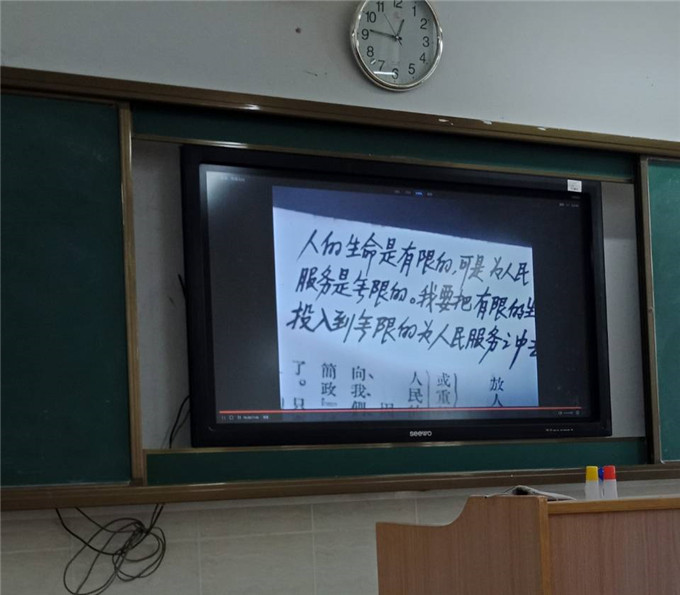 人的生命是有限的,可是为人民
服务是无限的。我要把有限的生
投入到无限的为人民服务之中去
放人
或重
人民
向、我們
簡政
了。只
seewo
12
1
2
3
4
5
6
7
8
9
10
11